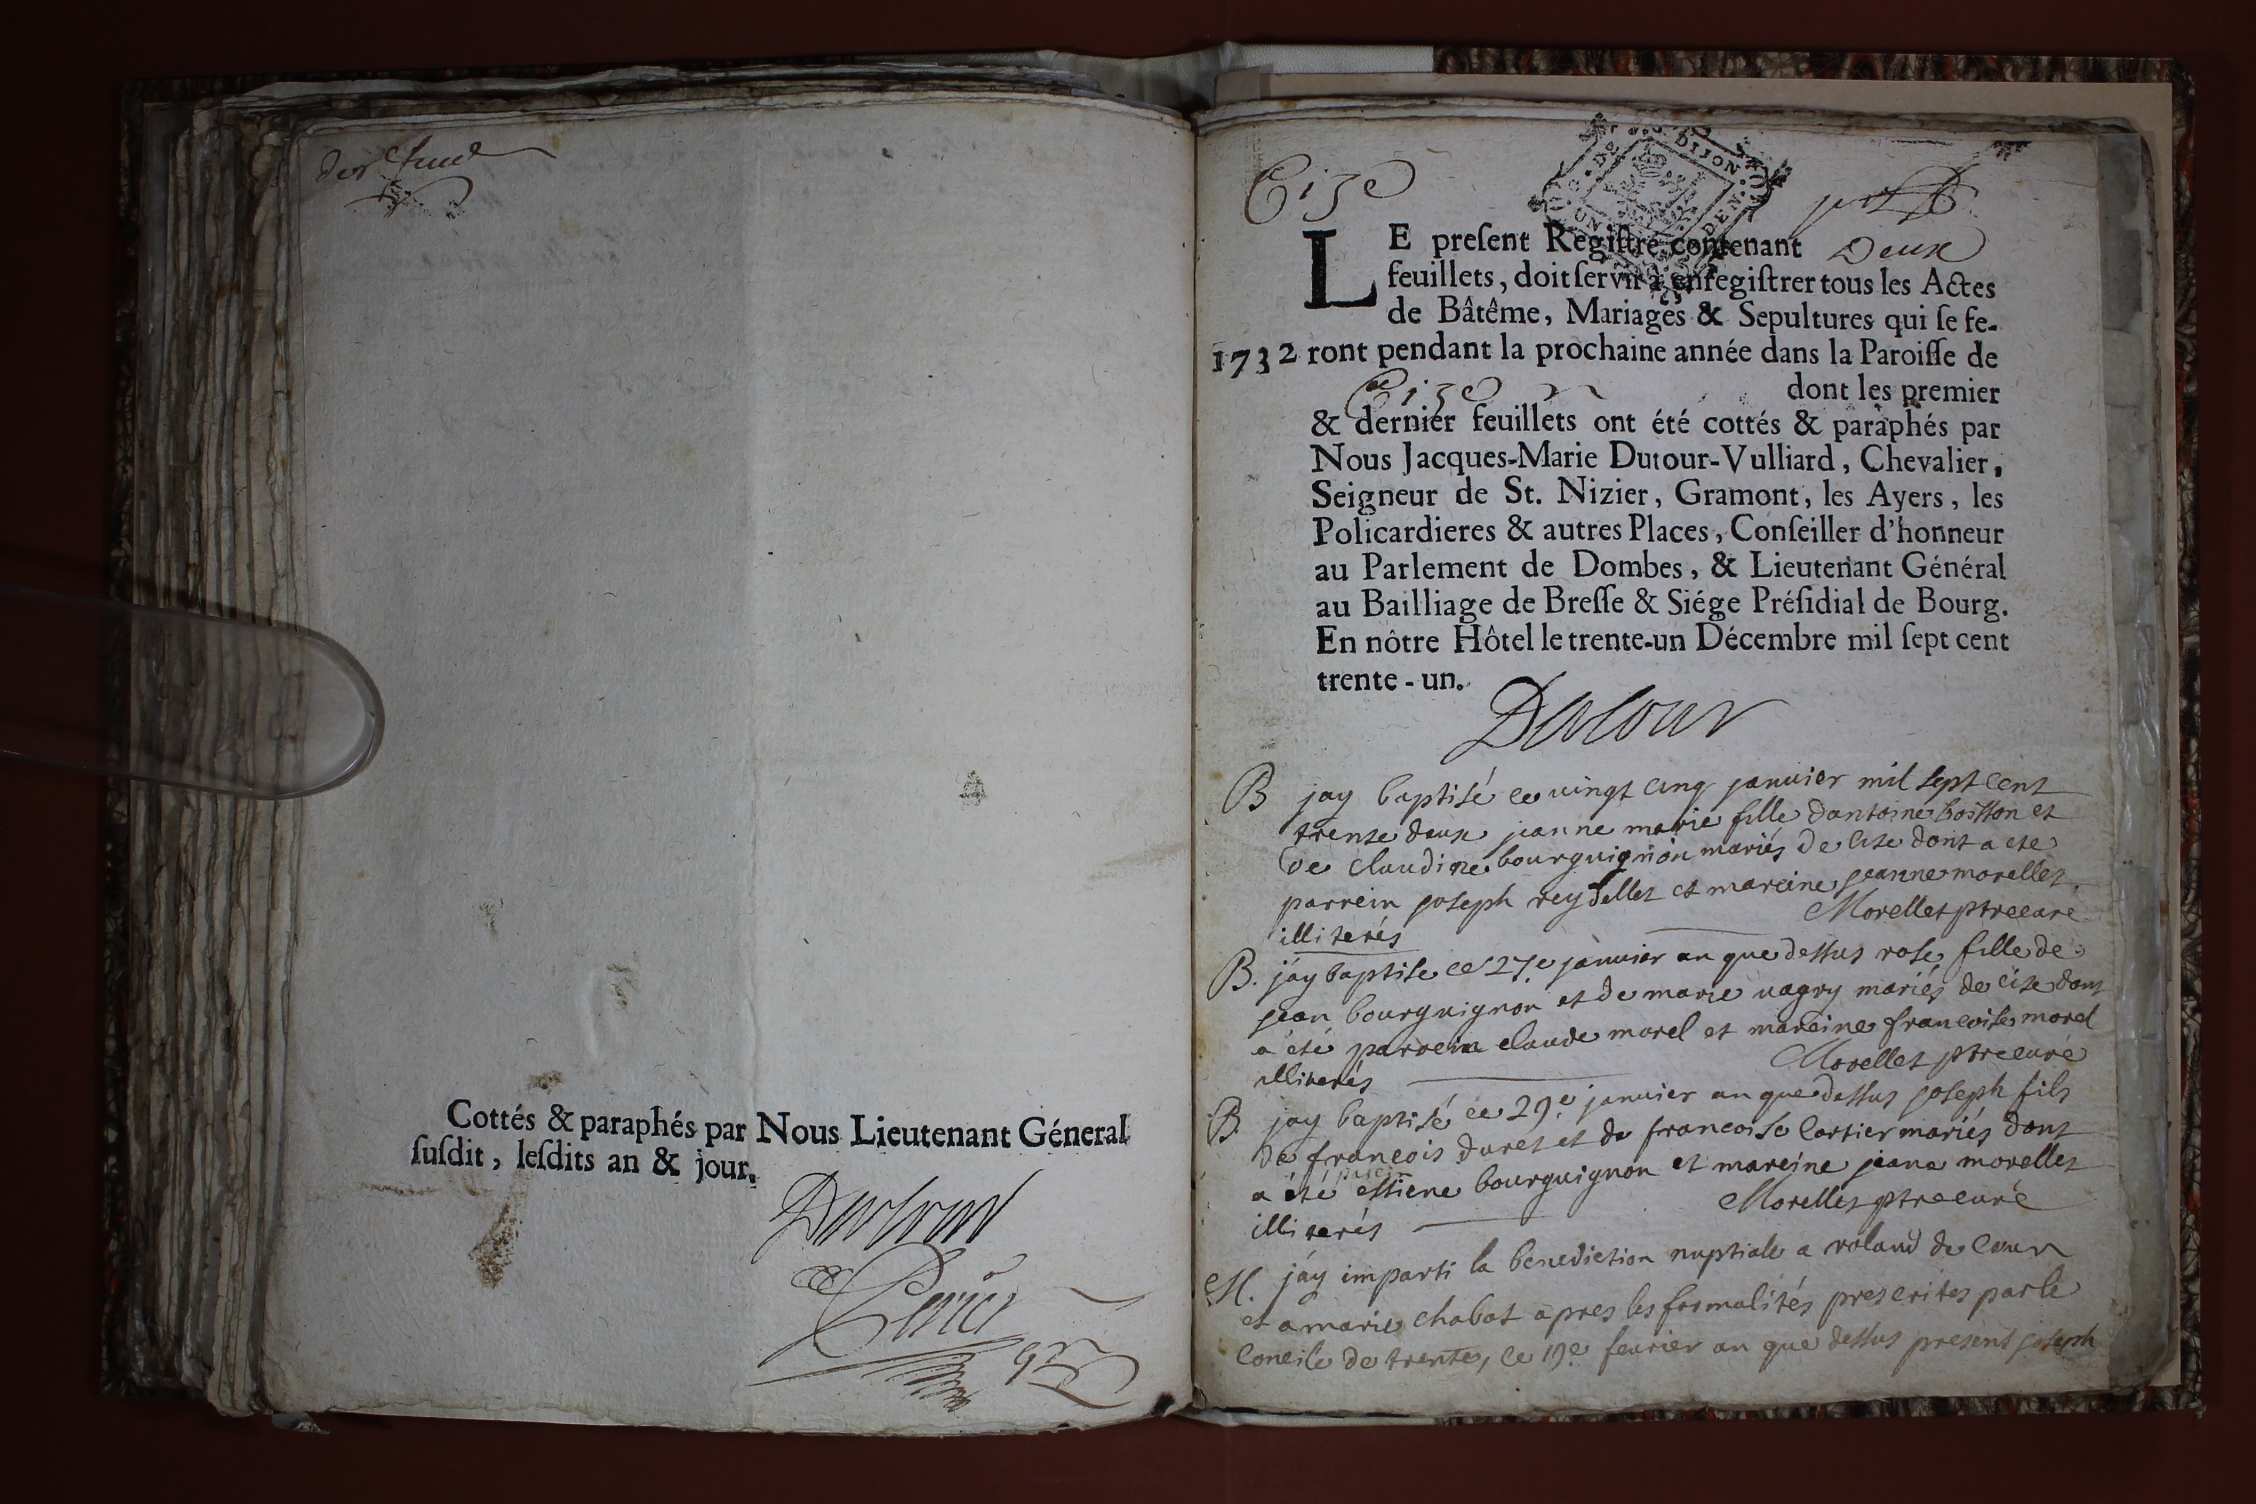 Cottés & paraphés par Nous Lieutenant Géneral
ſuſdit, leſdits an & jour.
Dutour
Cize
DIJON
LE preſent Regiſtre contenant Deux
feuillets, doit ſervir à enregiſtrer tous les Actes
de Bâtême, Mariages & Sepultures qui ſe fe-
1732 ront pendant la prochaine année dans la Paroiſſe de
Cize dont les premier
& dernier feuillets ont été cottés & paraphés par
Nous Jacques-Marie Dutour-Vulliard, Chevalier,
Seigneur de St. Nizier, Gramont, les Ayers, les
Policardieres & autres Places, Conſeiller d'honneur
au Parlement de Dombes, & Lieutenant Général
au Bailliage de Breſſe & Siége Préſidial de Bourg.
En nôtre Hôtel le trente-un Décembre mil ſept cent
trente-un.
Dutour
B jay baptisé ce vingt cinq janvier mil sept cent
trente deux jeanne marie fille dantoine boisson et
de claudine bourguignon mariés de cize dont a ete
parrein joseph reydellet et mareine jeanne morellet
illiterés Morellet ptre curé
B. jay baptise ce 27e janvier an que dessus rose fille de
jean bourguignon et de marie vagry mariés de cize dont
a été parrein claude morel et mareine francoise morel
illiterés Morellet ptre curé
B jay baptisé ce 29e janvier an que dessus joseph fils
de francois duret et de francoise cartier mariés dont
a été parein estiene bourguignon et mareine jeane morellet
illiterés Morellet ptre curé
M. jay imparti la benediction nuptiale a roland du cour
et a marie chabot apres les formalités prescrites par le
concile de trente, ce 19e fevrier an que dessus present joseph